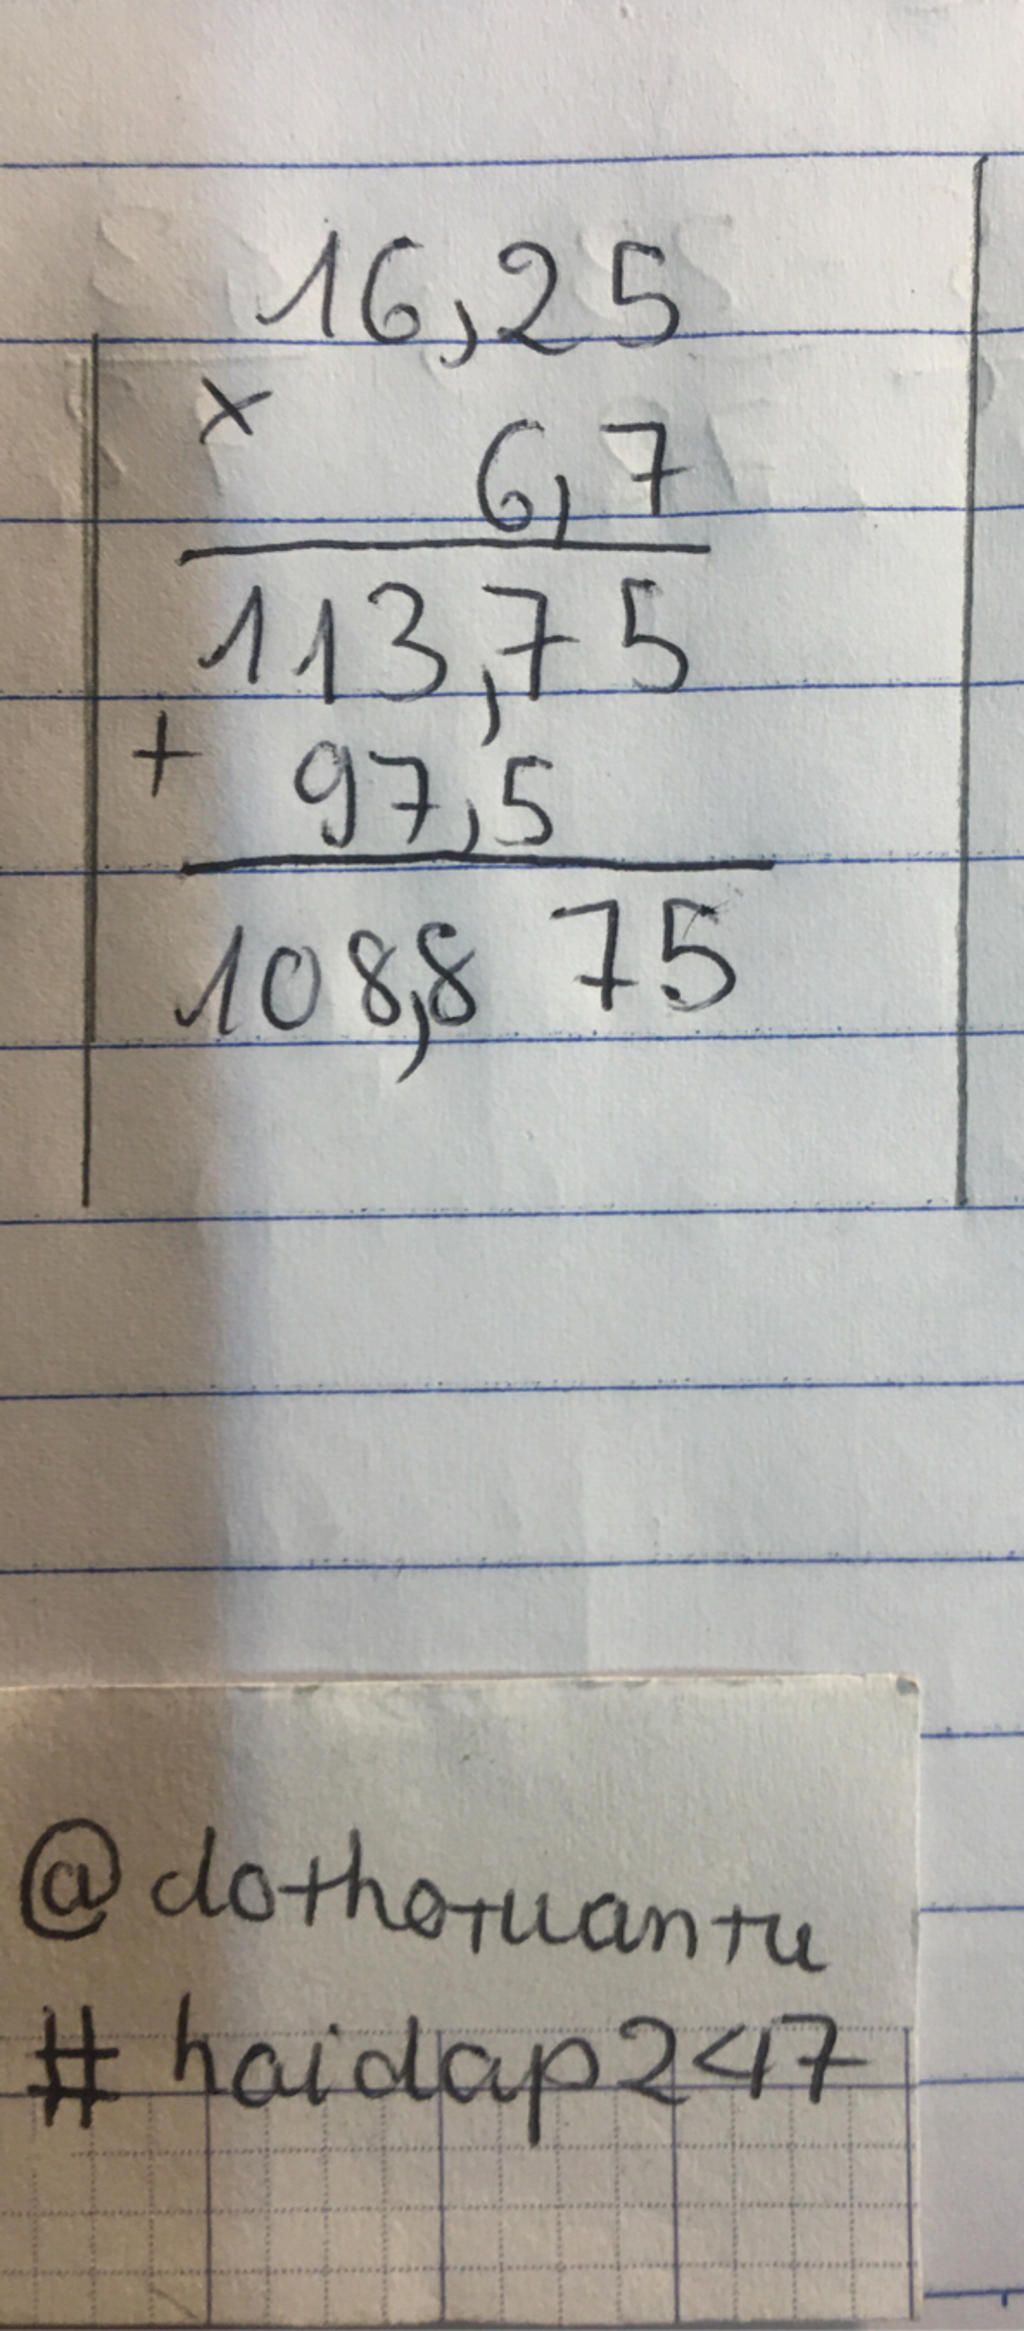 16,25
×
6,7
113,75
+ 97,5
108,8 75
@dothotuantu
#haidap247